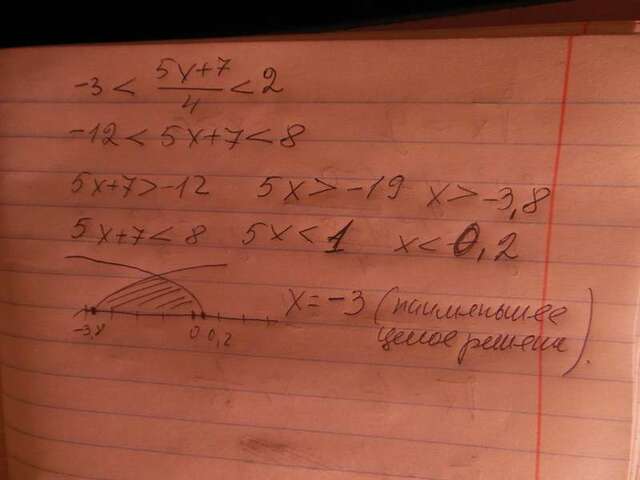 -3 < (5x+7)/4 < 2
-12 < 5x+7 < 8
5x+7 > -12 5x > -19 x > -3,8
5x+7 < 8 5x < 1 x < 0,2
-3,8 0 0,2
x = -3 (наименьшее
целое решение).